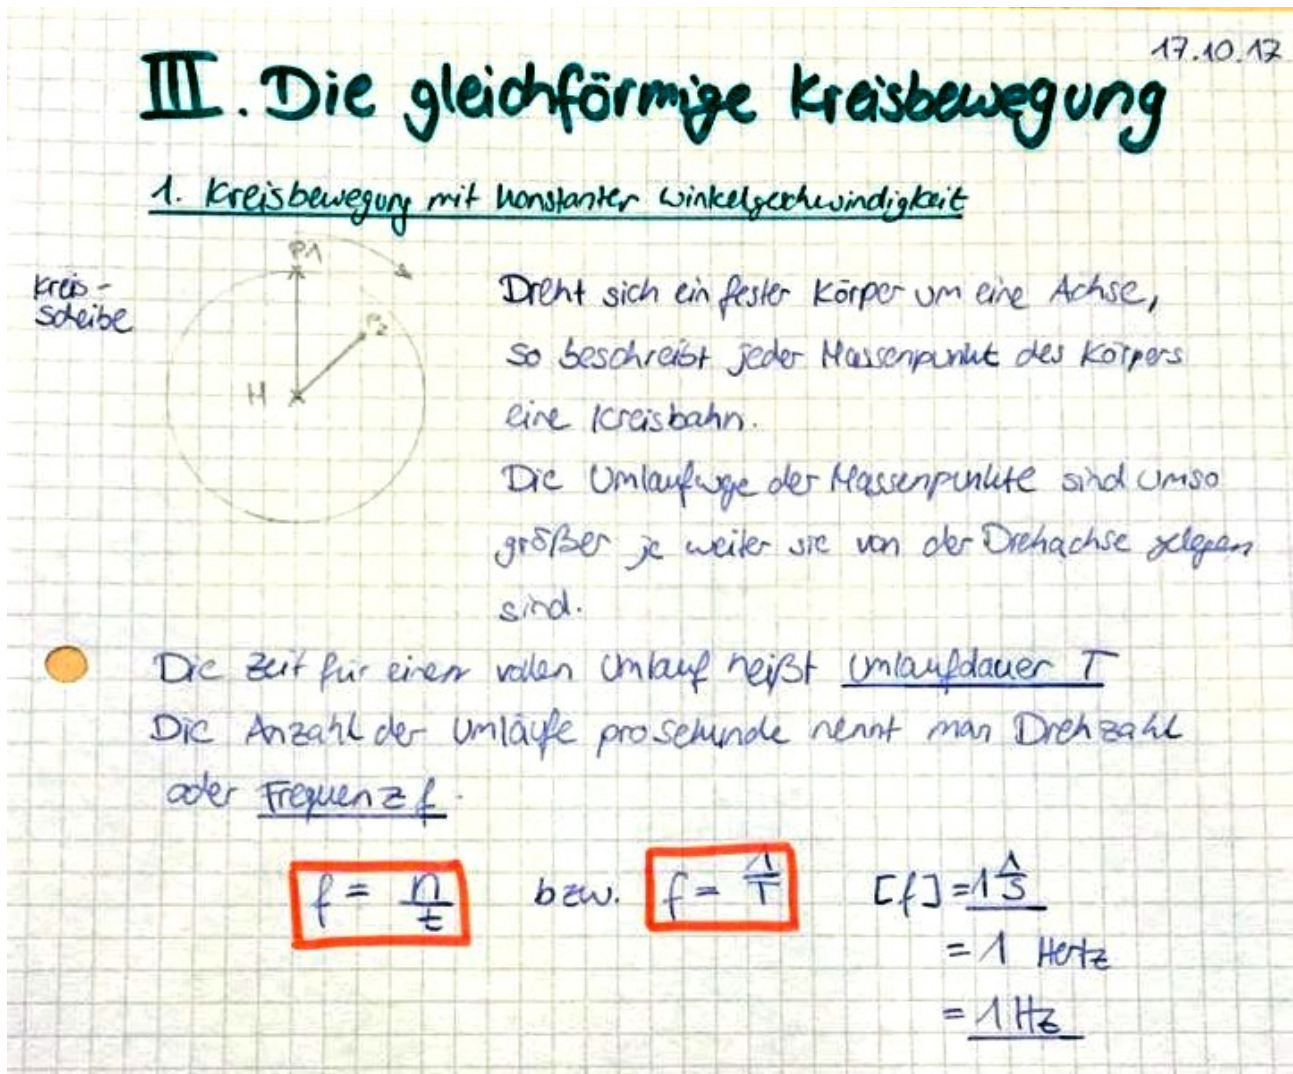 17.10.17
III. Die gleichförmige Kreisbewegung
1. Kreisbewegung mit konstanter Winkelgeschwindigkeit
P1
Kreis-
scheibe
P2
M
Dreht sich ein fester Körper um eine Achse,
so beschreibt jeder Massenpunkt des Körpers
eine Kreisbahn.
Die Umlaufwege der Massenpunkte sind umso
größer je weiter sie von der Drehachse gelegen
sind.
Die Zeit für einen vollen Umlauf heißt Umlaufdauer T
Die Anzahl der Umläufe pro Sekunde nennt man Drehzahl
oder Frequenz f.
f = n/t bzw. f = 1/T [f] = 1 1/s
= 1 Hertz
= 1 Hz